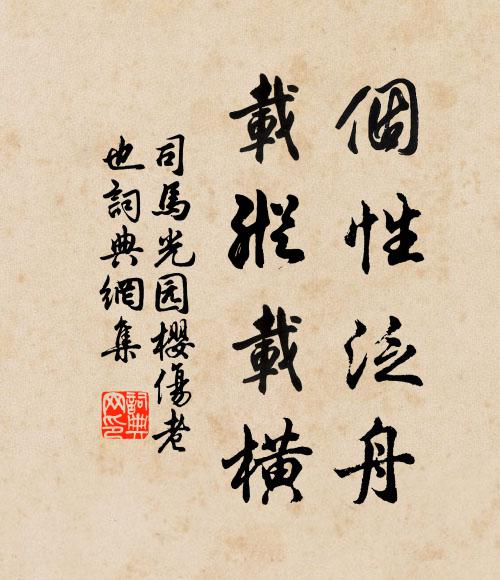 個性泛舟
載縱載橫
司馬光园櫻傷老
也詞典網集
詞典
网印